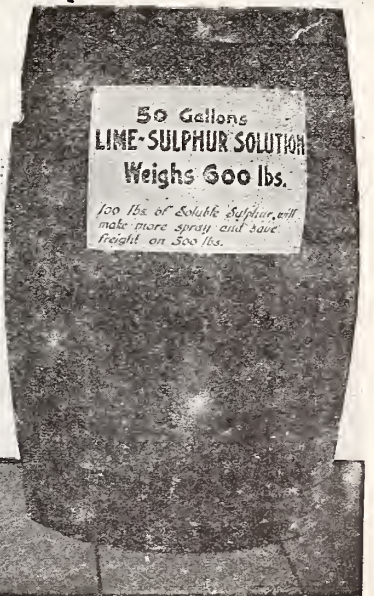 50 Gallons
LIME-SULPHUR SOLUTION
Weighs 600 lbs.
100 lbs. of Soluble Sulphur will
make more spray and save
freight on 500 lbs.